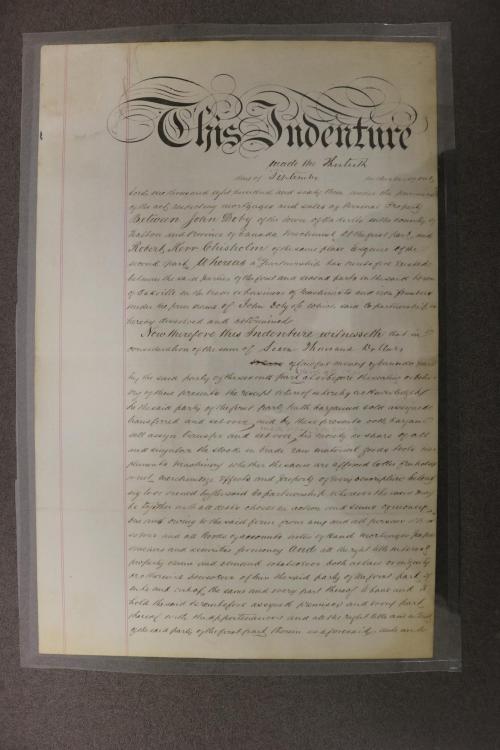 This Indenture
made the Thirtieth
day of September in the year of our
Lord one thousand eight hundred and sixty three under the
of the act respecting mortgages and sales of Personal Property
Between John Doty of the town of Oakville in the county of
Halton and Province of Canada Machinist of the first part, and
Robert Kerr Chisholm of the same place Esquire of the
second part, Whereas a Partnership has heretofore existed
between the said parties of the first and second parts in the said town
of Oakville in the trade or business of Machinists and iron founders
under the firm name of John Doty & Co which said Copartnership is
hereby dissolved and determined
Now therefore this Indenture witnesseth that in
consideration of the sum of Seven Thousand Dollars
of lawful money of Canada
by the said party of the second part at or before the sealing and
ery of these presents the receipt whereof is hereby acknowledged
he the said party of the first part, hath bargained sold assigned
transferred and set over, and by these presents doth bargain
sell assign transfer and set over, his moiety or share of all
and singular the stock in trade raw material goods tools im
plements Machinery whether the same are affixed to the freehold
or not, merchandize effects and property of every description belong
ing to or owned by the said Copartnership wheresoever the same may
be together with all debts choses in action and sums of money
due and owing to the said firm from any and all persons
and all Books of accounts notes of hand mortgages
and securities for money And all the right title interest
property claim and demand whatsoever both at law or in equity
or otherwise howsoever of him the said party of the first part, of
into and out of, the same and every part thereof To have and to
hold the said hereinbefore assigned premises and every part
thereof with the appurtenances and all the right title and interest
of the said party of the first part, therein as aforesaid, unto and